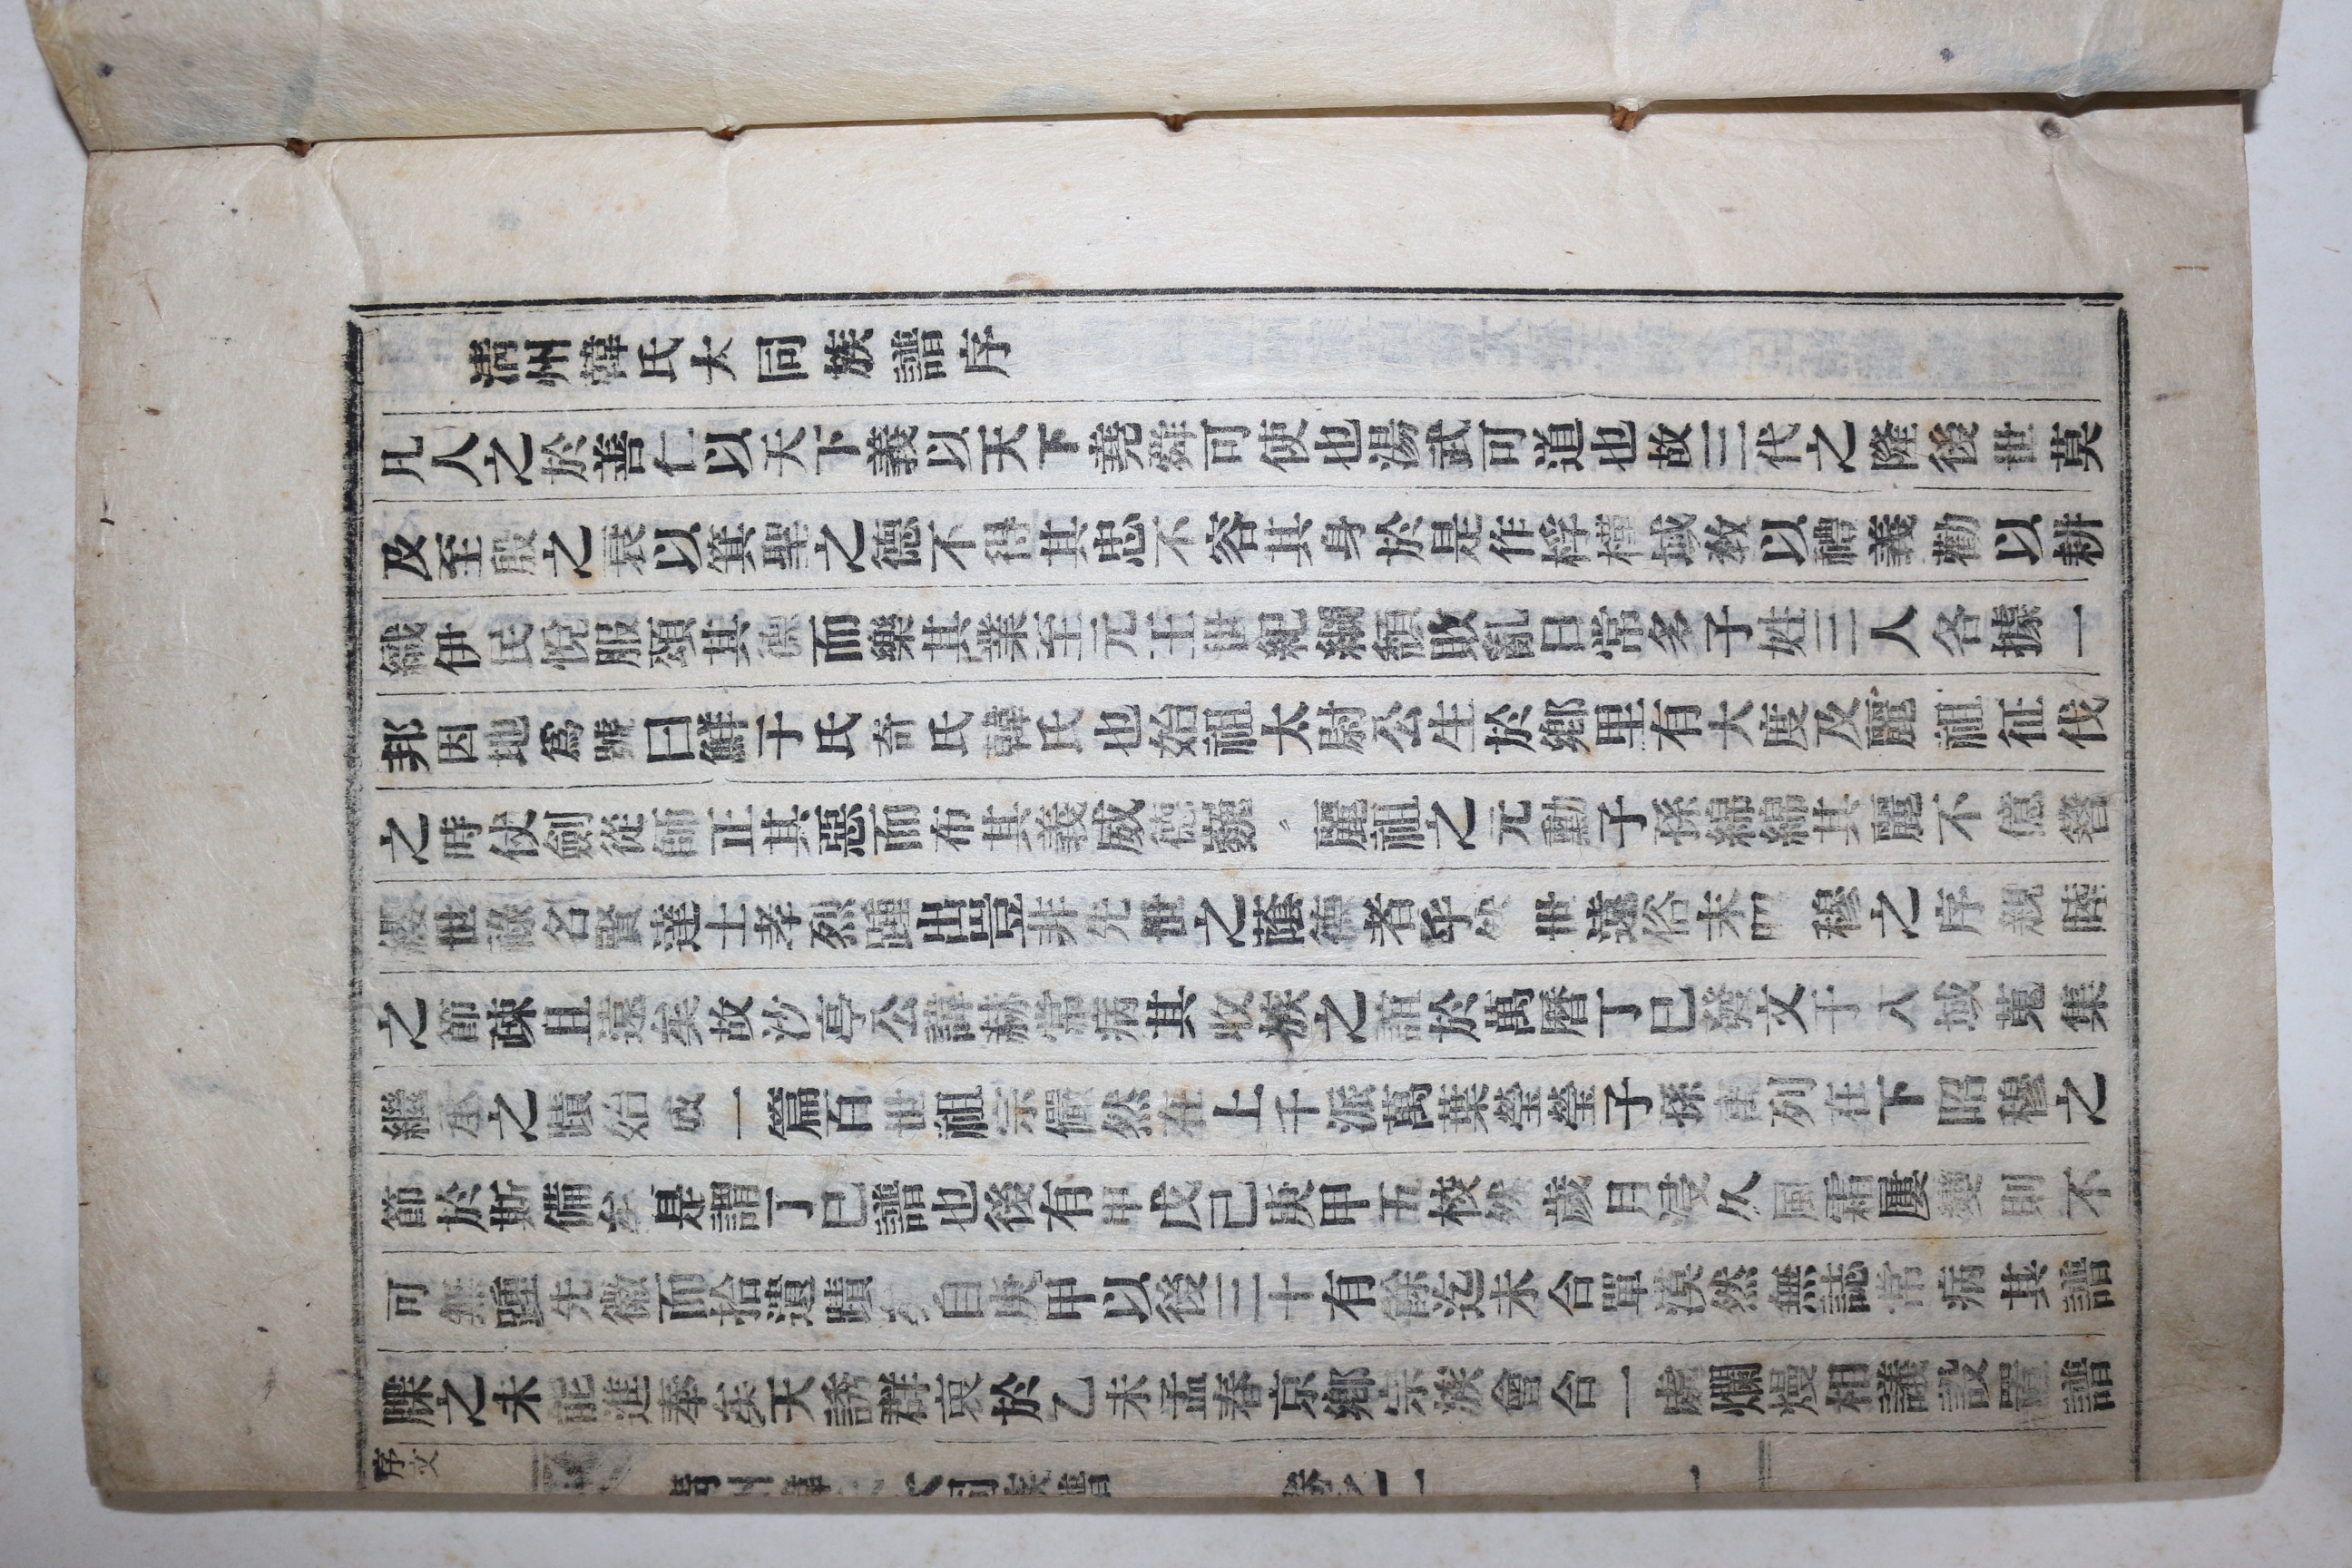 淸州韓氏大同族譜序
凡人之於善仁以天下義以天下堯舜可使也湯武可道也故三代之隆後世莫
及至殷之衰以箕聖之德不得其忠不容其身於是作桴槿域敎以禮義勸以耕
織伊民悅服頌其德而樂其業至元王世紀纈頹敗亂日常多子姓三人各據一
邦因地爲號曰鮮于氏奇氏韓氏也始祖太尉公生於鄕里有大度及麗祖征伐
之時仗劍從師正其惡而布其義威德巍〻麗祖之元勳子孫綿綿其麗不億簪
纓世祿名賢達士孝烈踵出豈非先世之蔭德者乎然世遠俗末昭穆之序親睦
之節疎且遠矣故沙亭公諱赫常病其收族之誼於萬曆丁巳發文于八域蒐集
繼承之蹟始成一篇百世祖宗儼然在上千派萬葉瑩瑩子孫萬列在下昭穆之
節於斯備矣是謂丁巳譜也後有甲戊己庚甲五校然歲月浸久風霜屢變則不
可無踵先徽而拾遺蹟矣自庚甲以後三十有餘迄未合單漠然無誌常病其譜
牒之未能進奉矣天誘群衷於乙未孟春京鄕宗族會合一處爛熳相議設置譜
序文
淸州韓氏大同族譜
卷之一
一